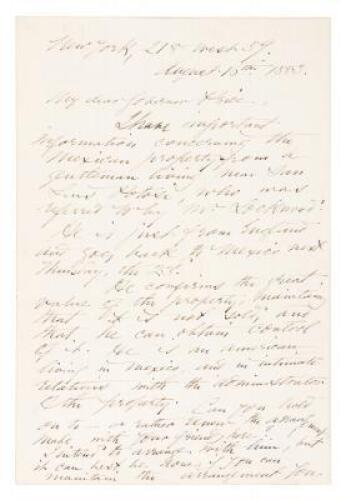 New York, 218 West 59.
August 15th 1883.
My dear Governor
I have important
information concerning the
Mexican property from a
gentleman living near San
Luis Potosi, who was
referred to by Mr Lockwood.
He is just from England
and goes back to Mexico next
Thursday, the
He confirms the great
value of the property; maintains
that it is not sold, and
that he can obtain control
of it. He is an American
living in Mexico and in intimate
relations with the administrator
of the property. Can you hold
on to – or rather renew the arrangement
made with your friend here.
I intend to arrange with him, but
it can best be done if you can
maintain the arrangement you